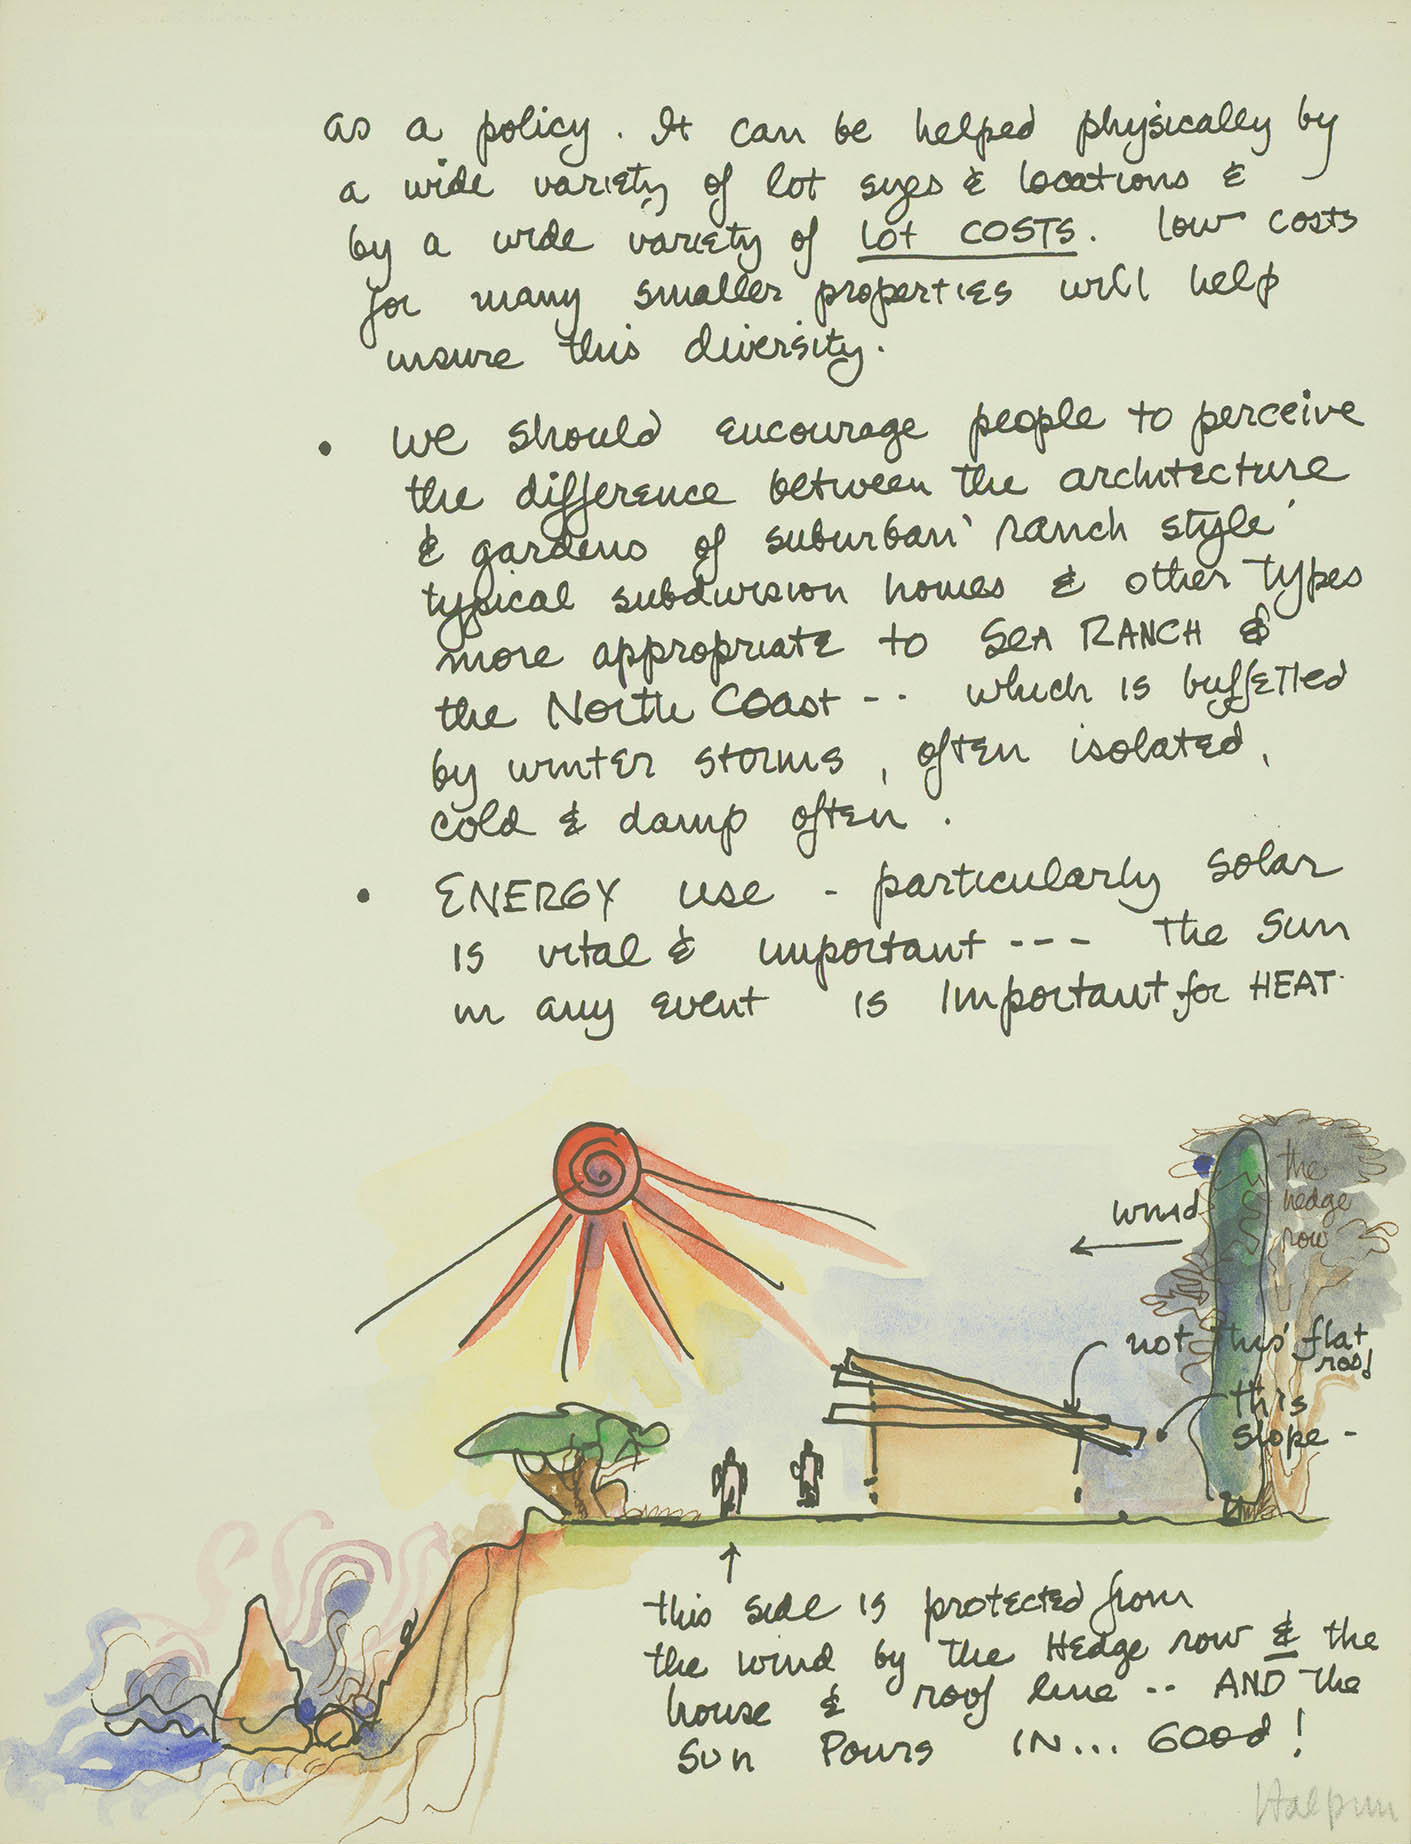 as a policy. It can be helped physically by
a wide variety of lot sizes & locations &
by a wide variety of lot COSTS. low costs
for many smaller properties will help
insure this diversity.
• We should encourage people to perceive
the difference between the architecture
& gardens of suburban 'ranch style'
typical subdivision homes & other types
more appropriate to SEA RANCH &
the North Coast -- which is buffetted
by winter storms, often isolated,
cold & damp often.
• ENERGY use - particularly solar
is vital & important --- The sun
in any event is important for HEAT.
wind
the
hedge
row
not 'this' flat
roof
this
slope -
this side is protected from
the wind by the Hedge row & the
house & roof line -- AND the
Sun Pours IN... Good!
Halprin